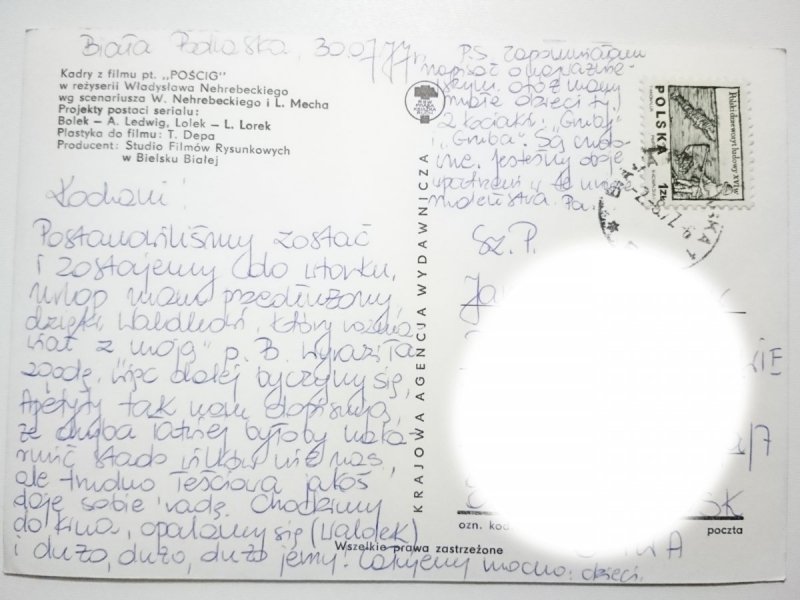 Biała Podlaska, 30.07.77r.
Kadry z filmu pt. „POŚCIG"
w reżyserii Władysława Nehrebeckiego
wg scenariusza W. Nehrebeckiego i L. Mecha
Projekty postaci serialu:
Bolek – A. Ledwig, Lolek – L. Lorek
Plastyka do filmu: T. Depa
Producent: Studio Filmów Rysunkowych
w Bielsku Białej
Kochani!
Postanowiliśmy zostać
i zostajemy do wtorku,
urlop mam przedłużony
dzięki Waldkowi, który
z moją p. B. wyraziła
zgodę, więc dalej byczymy się,
Apetyty tak nam dopisują,
że chyba łatwiej byłoby
stado wilków niż nas,
ale trudno teściowa jakoś
daje sobie radę. Chodzimy
do kina, opalamy się (Waldek)
i dużo, dużo, dużo jemy! Całujemy mocno: dzieci.
P.S. Zapomniałam
napisać o
otóż mamy
moje dzieci
2 kociaki „Gruby"
i „Gruba". Są
Jesteśmy
w te
Pa.
KRAJOWA AGENCJA WYDAWNICZA
Polski drzeworyt ludowy XVI w.
POLSKA
1zł
Sz. P.
Ja
K
KIE
1/7
SK
ozn. kod
poczta
WA
Wszelkie prawa zastrzeżone